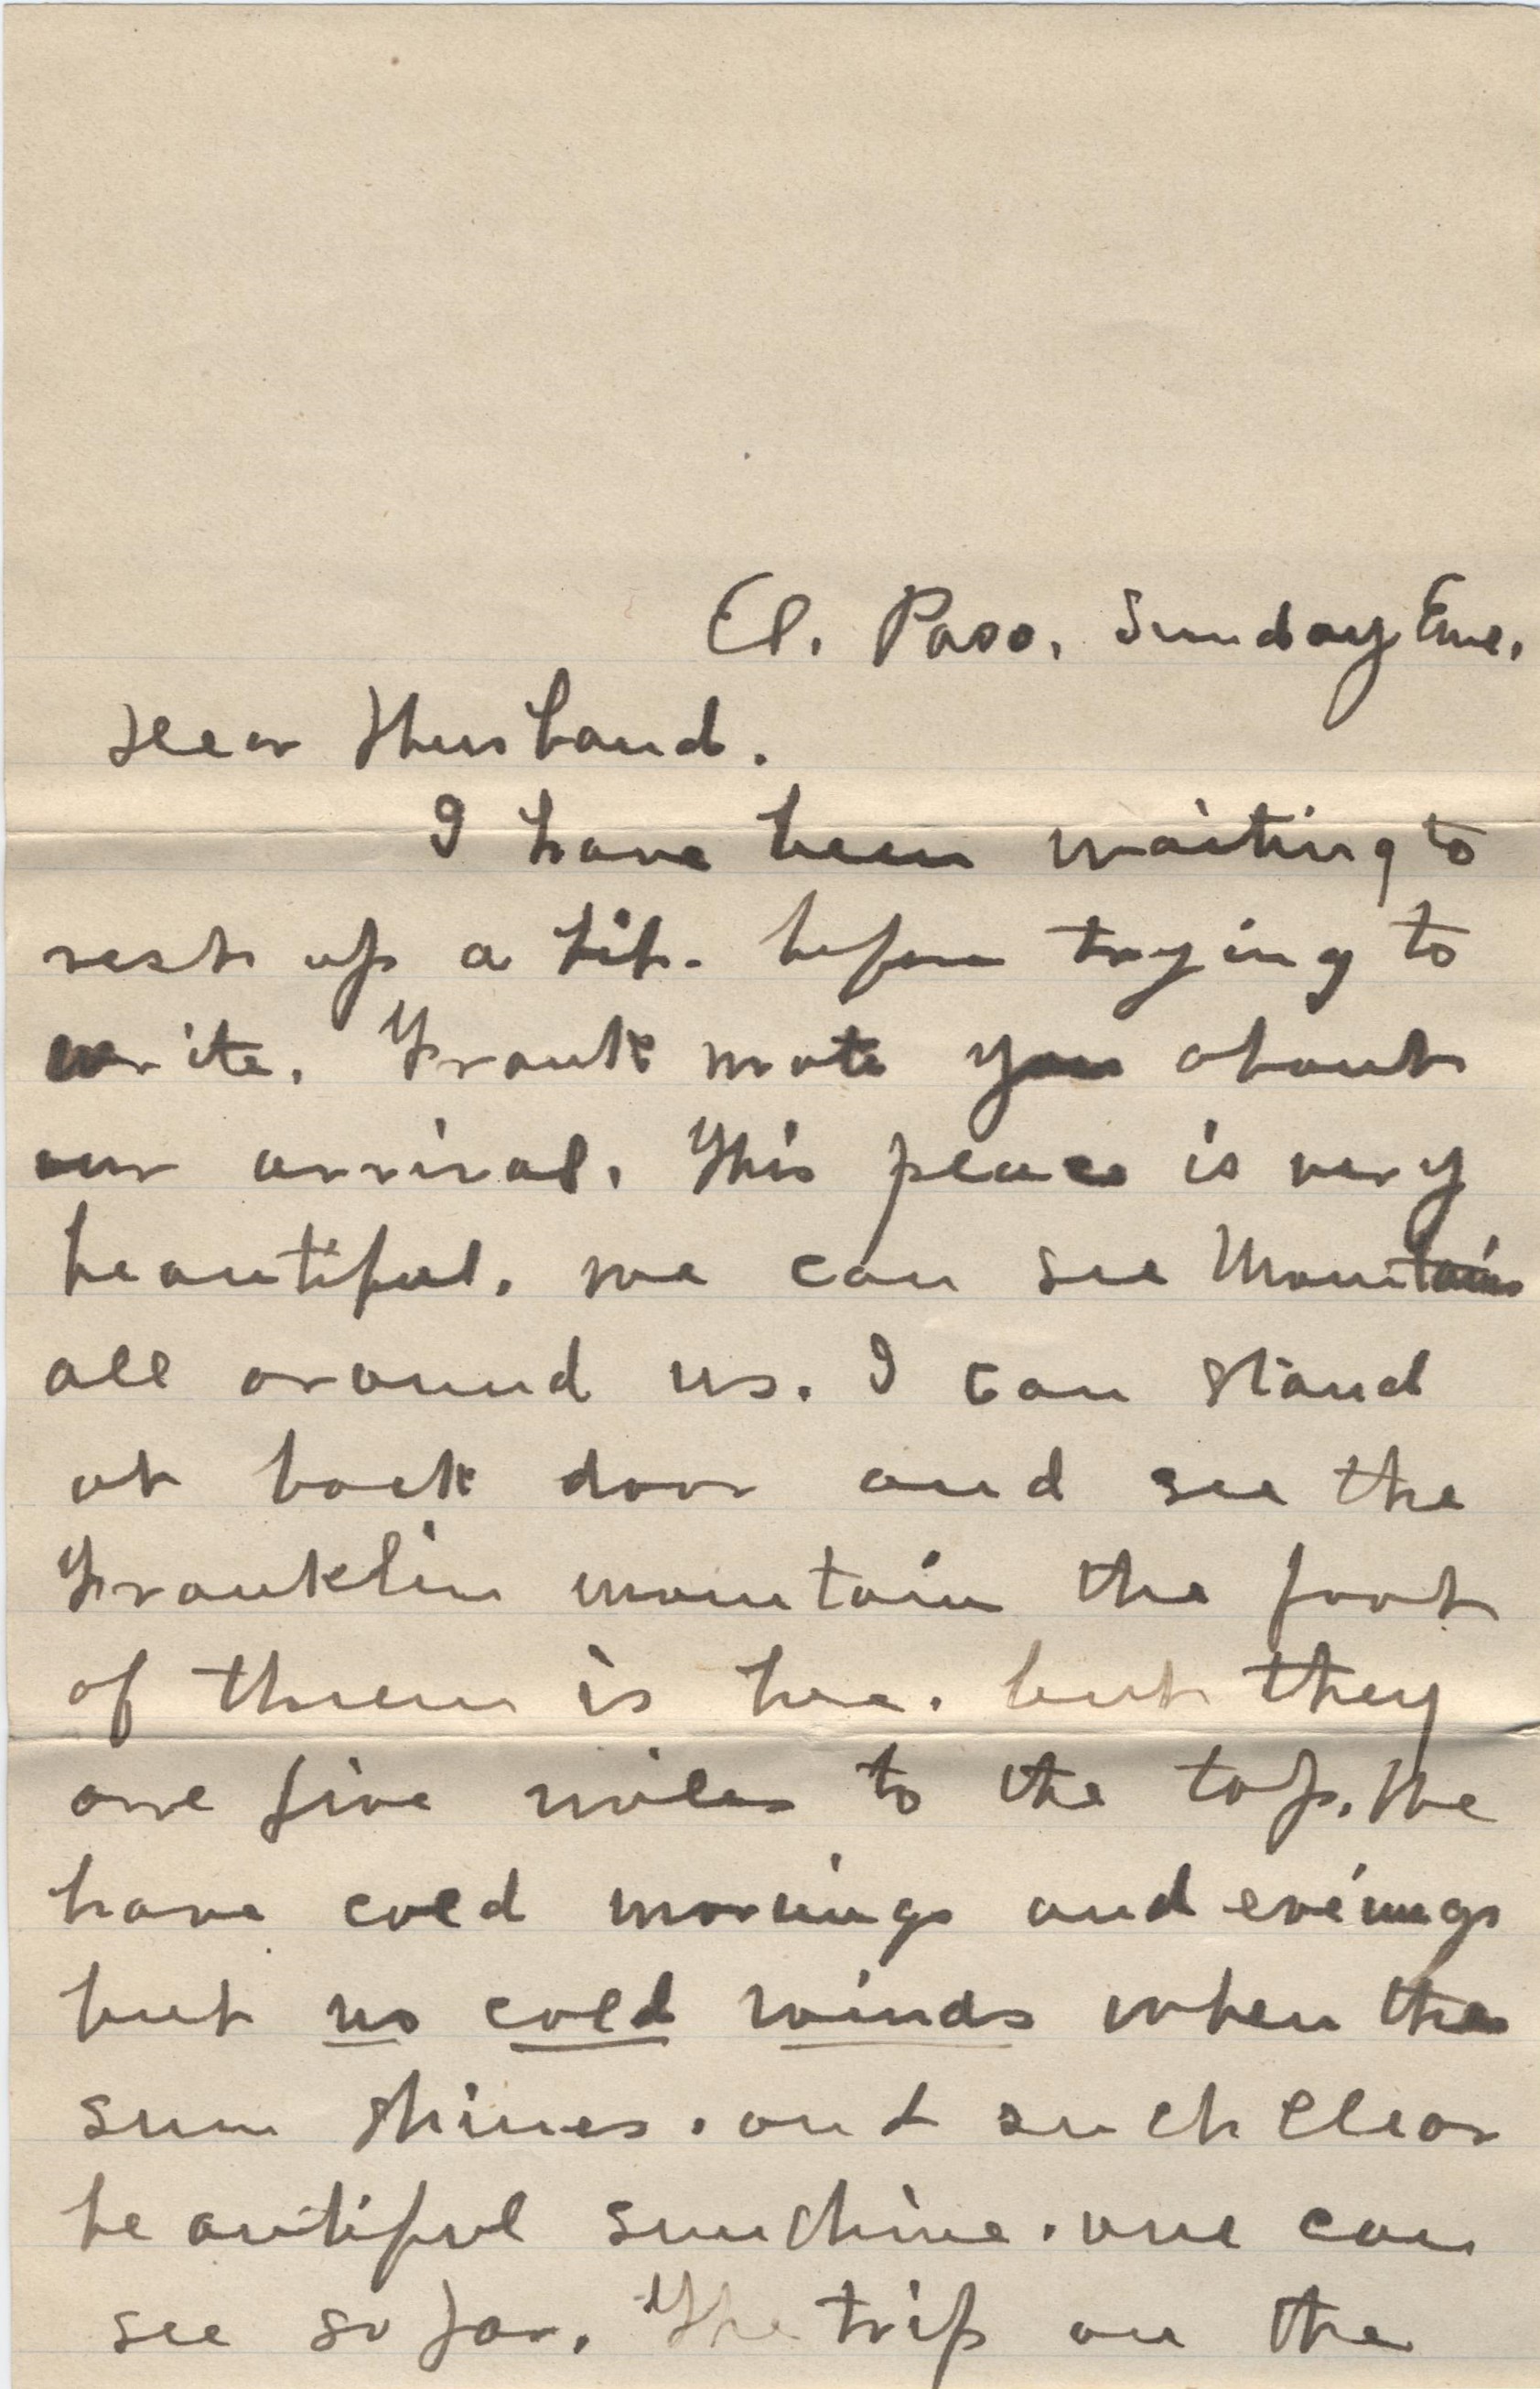 El. Paso. Sunday Eve.
Dear Husband.
I have been waiting to
rest up a bit. before trying to
write. Frank wrote you about
our arrival. This place is very
beautiful. we can see Mountains
all around us. I can stand
at back door and see the
Franklin mountain the foot
of them is here. but they
are five miles to the top. We
have cold mornings and evenings
but no cold winds when the
sun shines. and such clear
beautiful sunshine. one can
see so far. The trip on the